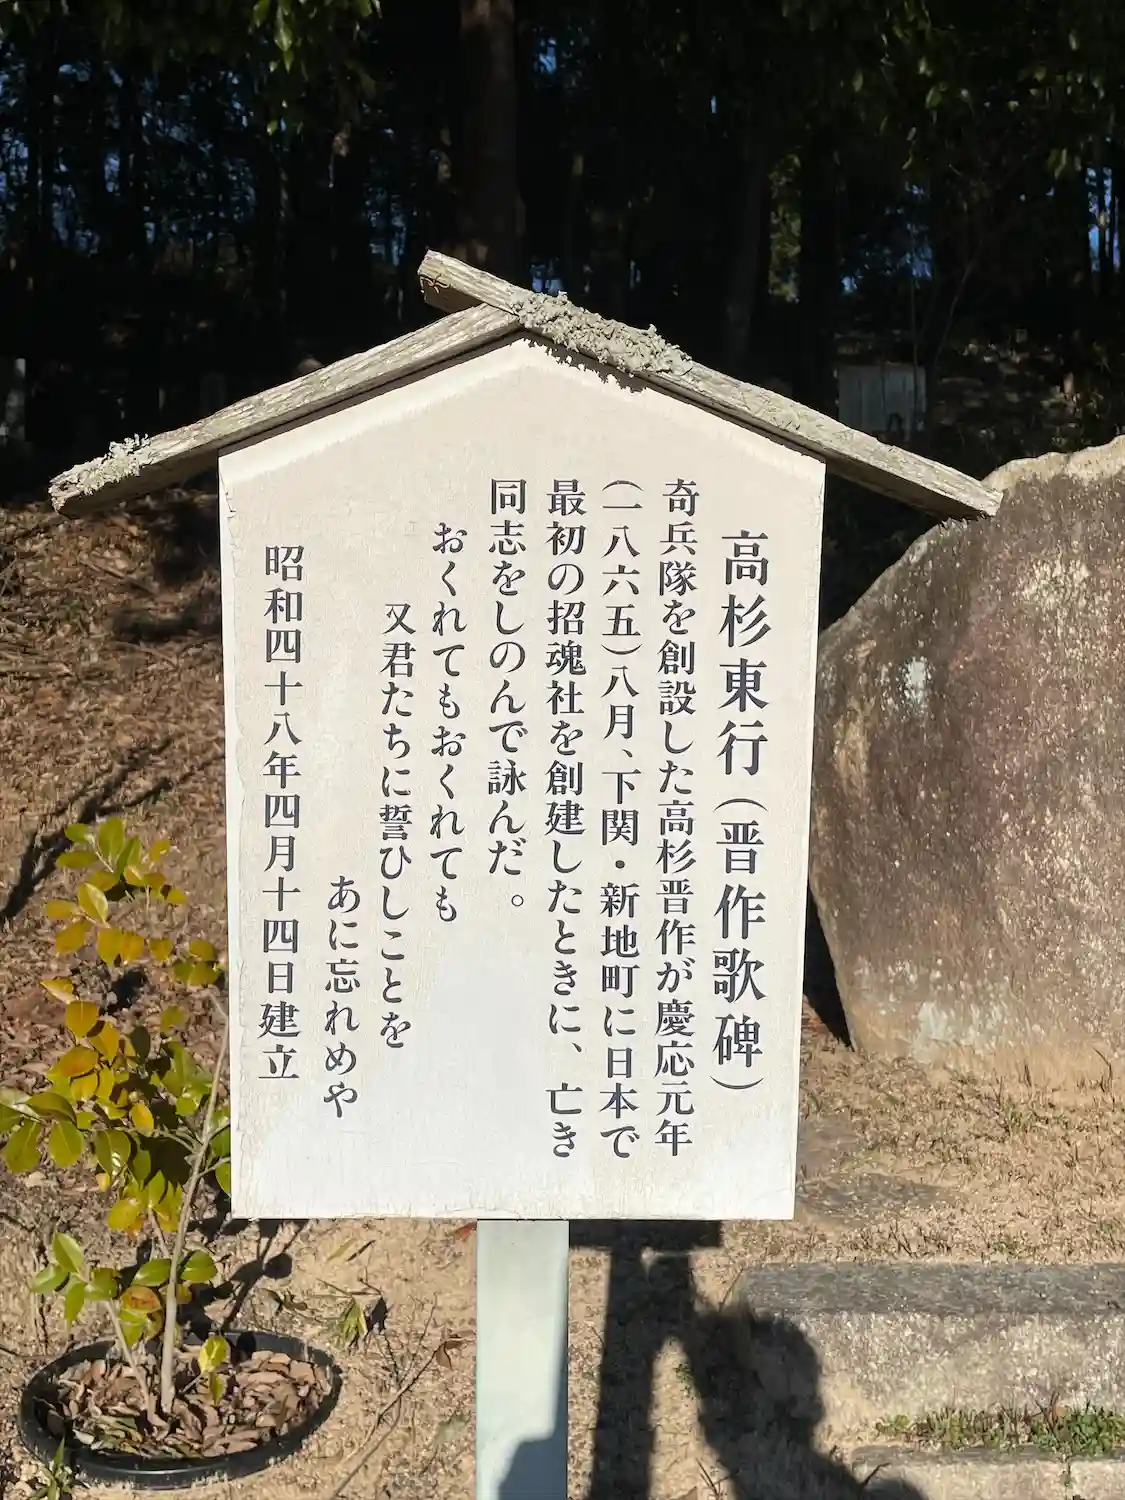 高杉東行(晋作歌碑)
奇兵隊を創設した高杉晋作が慶応元年
(一八六五)八月、下関・新地町に日本で
最初の招魂社を創建したときに、亡き
同志をしのんで詠んだ。
おくれてもおくれても
又君たちに誓ひしことを
あに忘れめや
昭和四十八年四月十四日建立